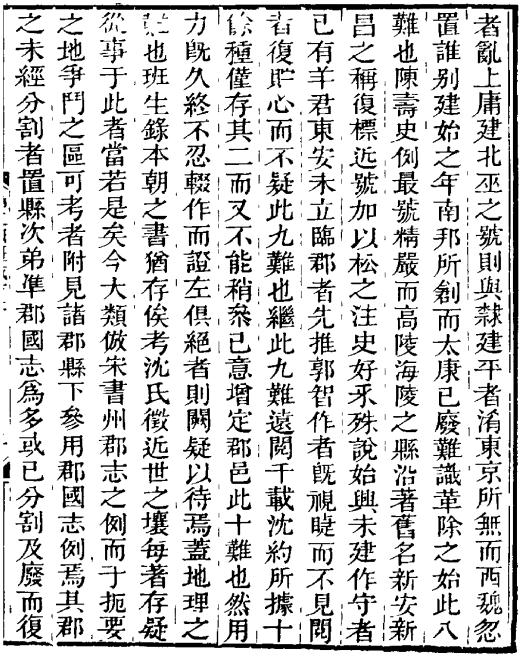 者亂上庸建北巫之號則與隸建平者淆東京所無而西魏忽
置誰别建始之年南邦所創而太康已廢難識革除之始此八
難也陳壽史例最號精嚴而高陵海陵之縣沿著舊名新安新
昌之稱復標近號加以松之注史好釆殊說始興未建作守者
已有羊君東安未立臨郡者先推郭智作者旣視睫而不見閱
者復貯心而不疑此九難也繼此九難遠閱千載沈約所據十
餘種僅存其二而又不能稍叅已意增定郡邑此十難也然用
力旣久終不忍輟作而證左俱絕者則闕疑以待焉蓋地理之
難也班生錄本朝之書猶存俟考沈氏徵近世之壤每著存疑
從事于此者當若是矣今大類倣宋書州郡志之例而于扼要
之地爭鬥之區可考者附見諸郡縣下參用郡國志例焉其郡
之未經分割者置縣次弟準郡國志爲多或已分割及廢而復